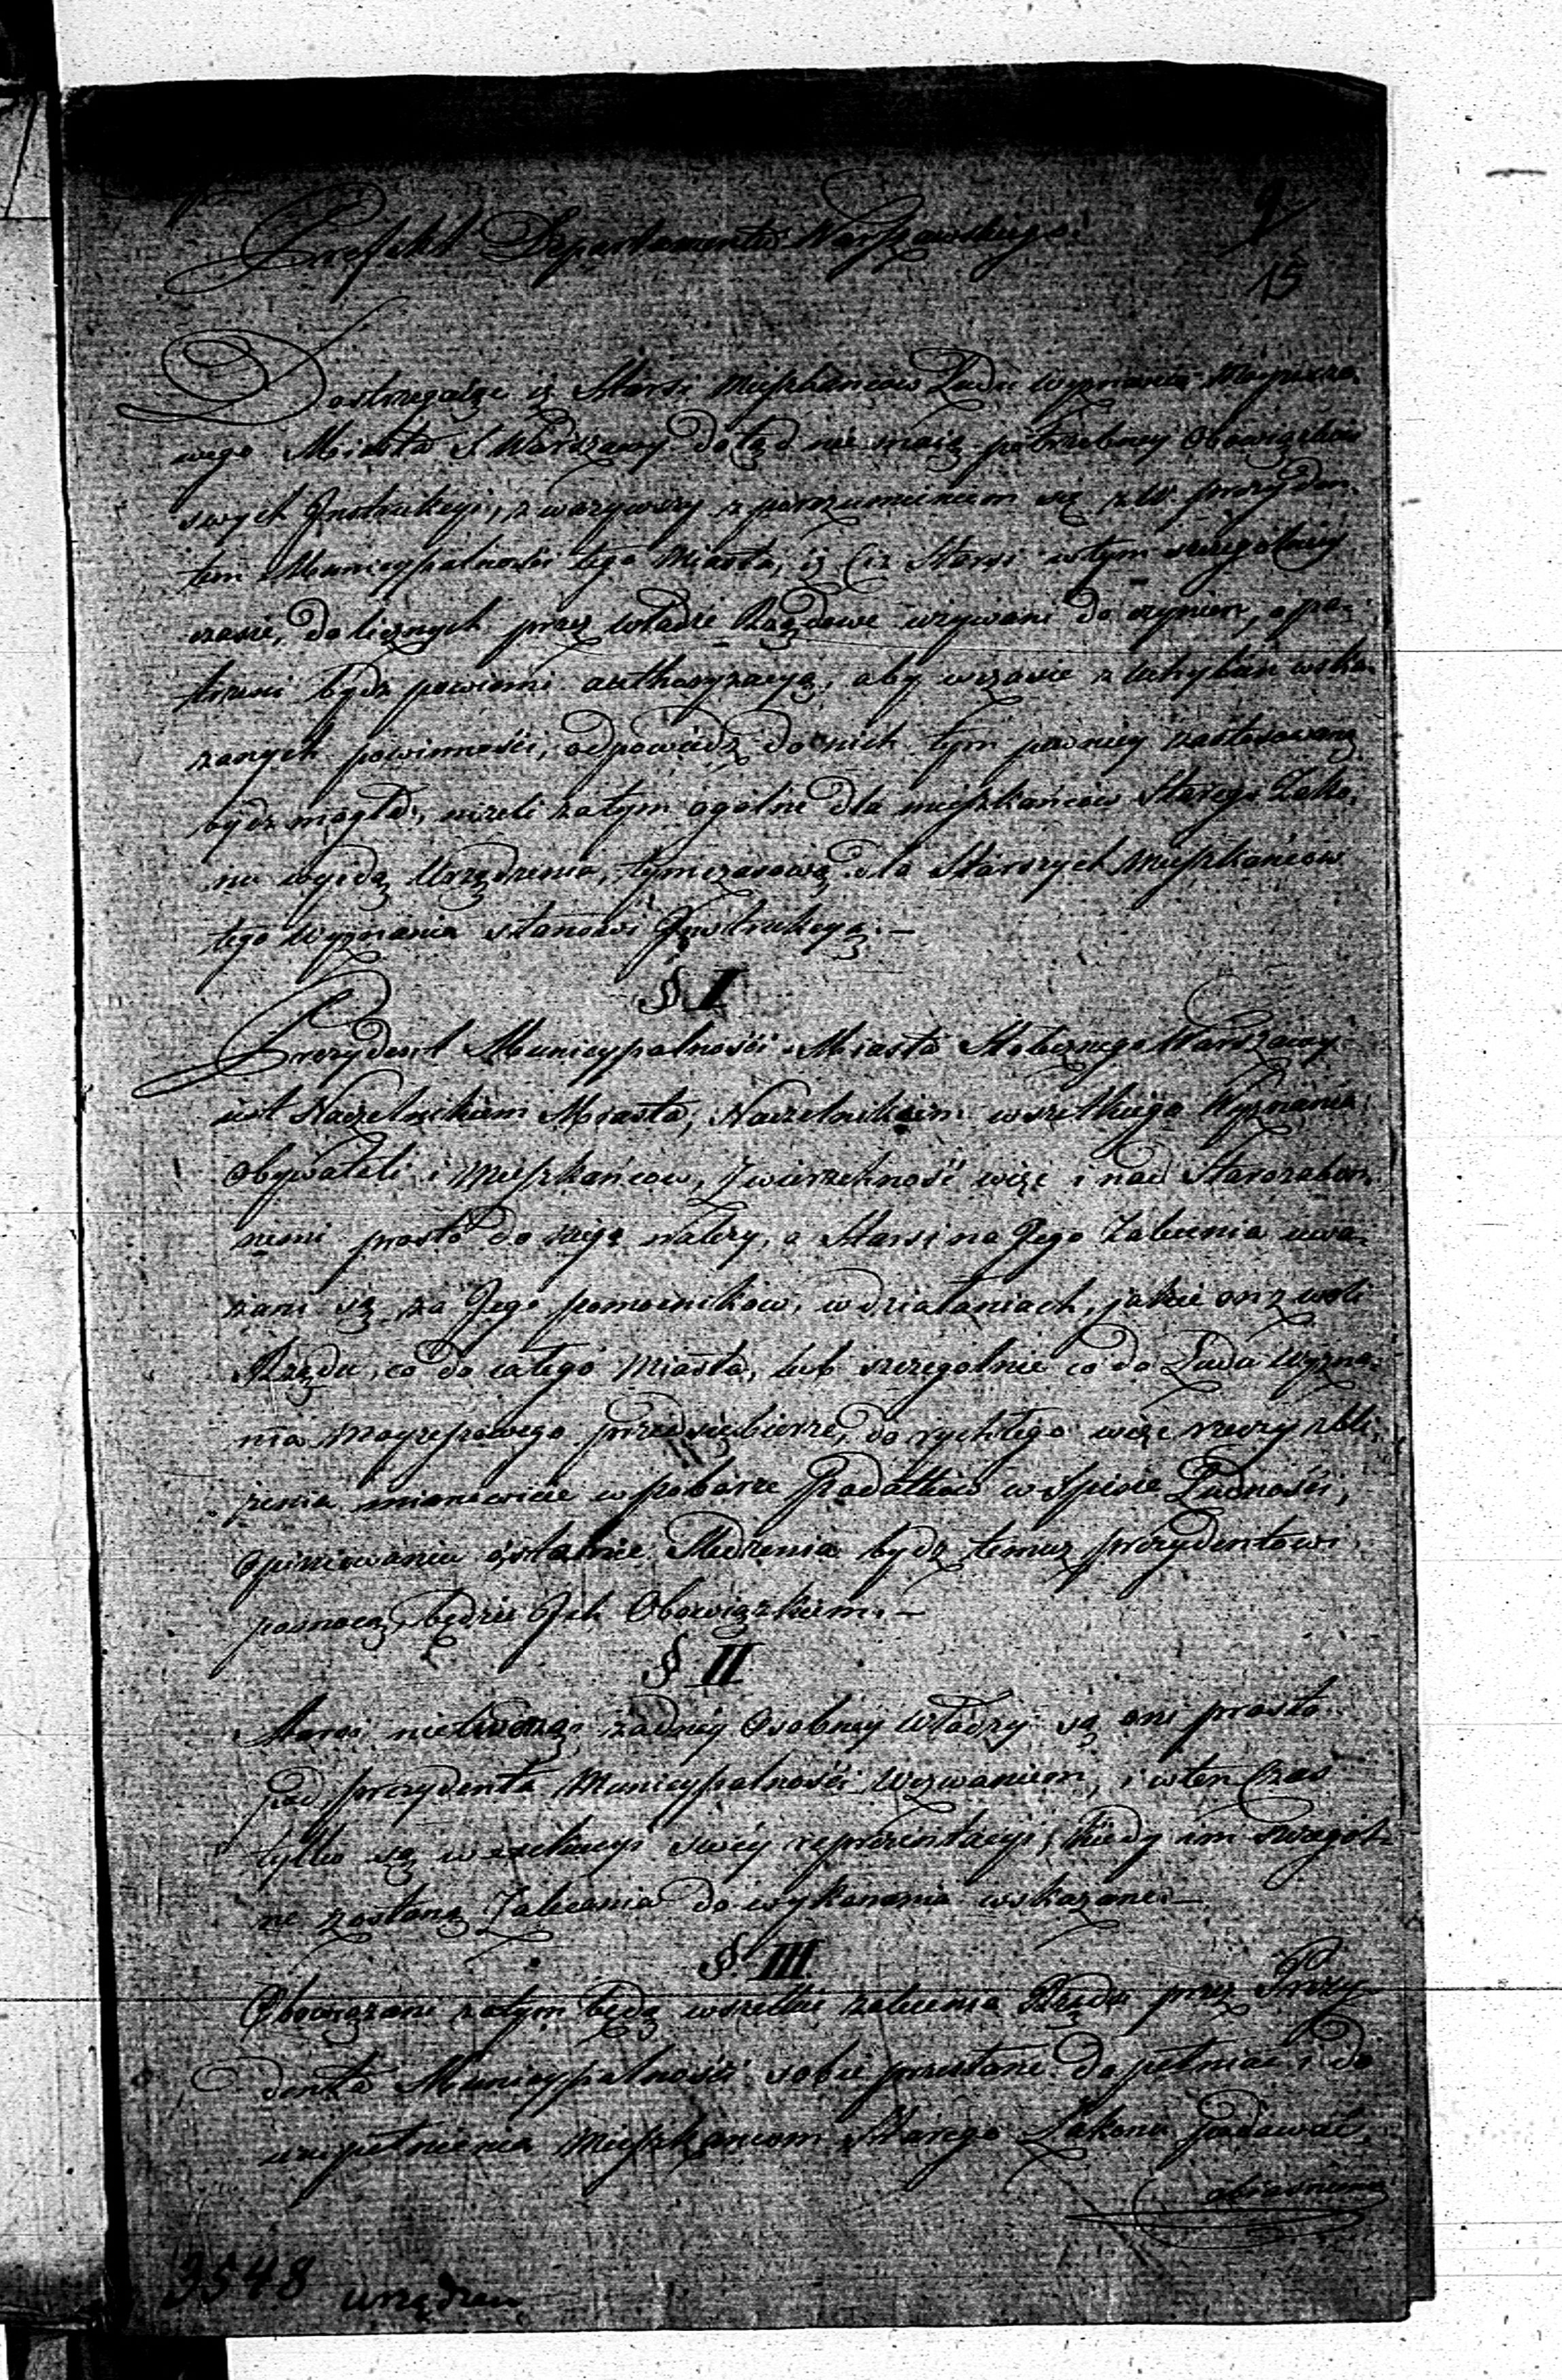 Prefekt Departamentu Warszawskiego
9
15
Dostrzegaiąc iż Starsi Mieszkańcow Ludu wyznania Moyżeszo-
wego Miasta S. Warszawy dotąd nie maią potrzebney Obowiązkow
swych Instrukcyi, zważywszy z porozumieniem się z W. prezyden-
tem Municypalnosći tego Miasta, iż Ci Starsi w tym szczegolniey
czasie, do licznych przez władze Rządowe wzywani do czynien, opa-
trzeni bydz powinni authoryzacyą, aby w czasie z uchybień wska-
zanych powinnosći, odpowiedz do nich tym pewniey zastosowaną
bydz mogła, nizeli zatym ogolne dla mieszkańcow Starego Zako-
nu wyidą Urządzenia, tymczasową dla Starszych Mieszkańcow
tego Wyznania stanowi Instrukcyą.—
§ I
Prezydent Municypalnosći Miasta Stołecznego Warszawy
iest Naczelnikiem Miasta, Naczelnikiem wszelkiego Wyznania
Obywateli i Mieszkańcow, Zwierzchność więc i nad Starozakon-
nemi prosto do niego należy, a Starsi na Jego Zalecenia uwa-
żani są za Jego pomocnikow, w działaniach, jakie on z woli
Rządu, co do całego Miasta, lub szczegolnie co do Ludu Wyzna-
nia Moyżeszowego przedsiębierze, do rychłego więc rzeczy zbli-
żenia mianowicie w poborze Podatkow w Spisie Ludnośći,
Opiniowaniu ostatnie Mędrzenia bydz temuż prezydentowi
pomocą, będzie Ich Obowiązkiem.—
§ II
Starsi nietworzą żadney Osobney Władzy są oni prosto
pod prezydenta Municypalnośći Wezwaniem, i w ten Czas
tylko są w exekucyi swéy reprezentacyi, kiedy im szczegol-
ne zostaną Zalecenia do wykonania wskazane.—
§ III
Obowiązani zatym będą wszelkie zalecenia Rządu przez Prezy-
denta Municypalnośći sobie przesłane dopełniać i do
uzupełnienia Mieszkancom Starego Zakonu podawać,
3548 urządzen